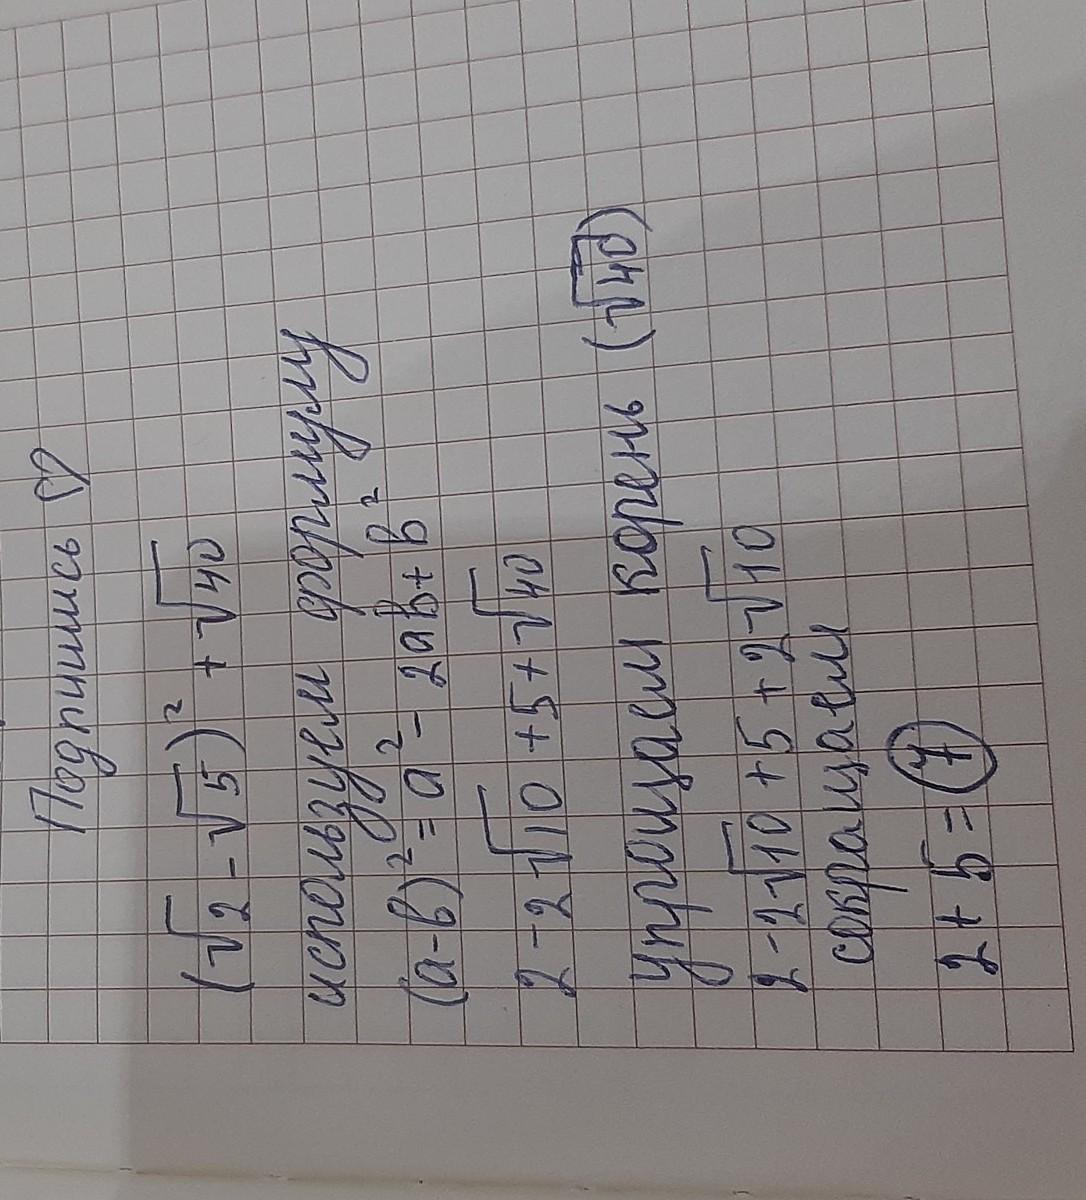 Подпишись ♡
(√2 - √5)² + √40
используем формулу
(а-в)² = а² - 2ав + в²
2 - 2√10 + 5 + √40
упрощаем корень (√40)
2 - 2√10 + 5 + 2√10
сокращаем
2 + 5 = 7